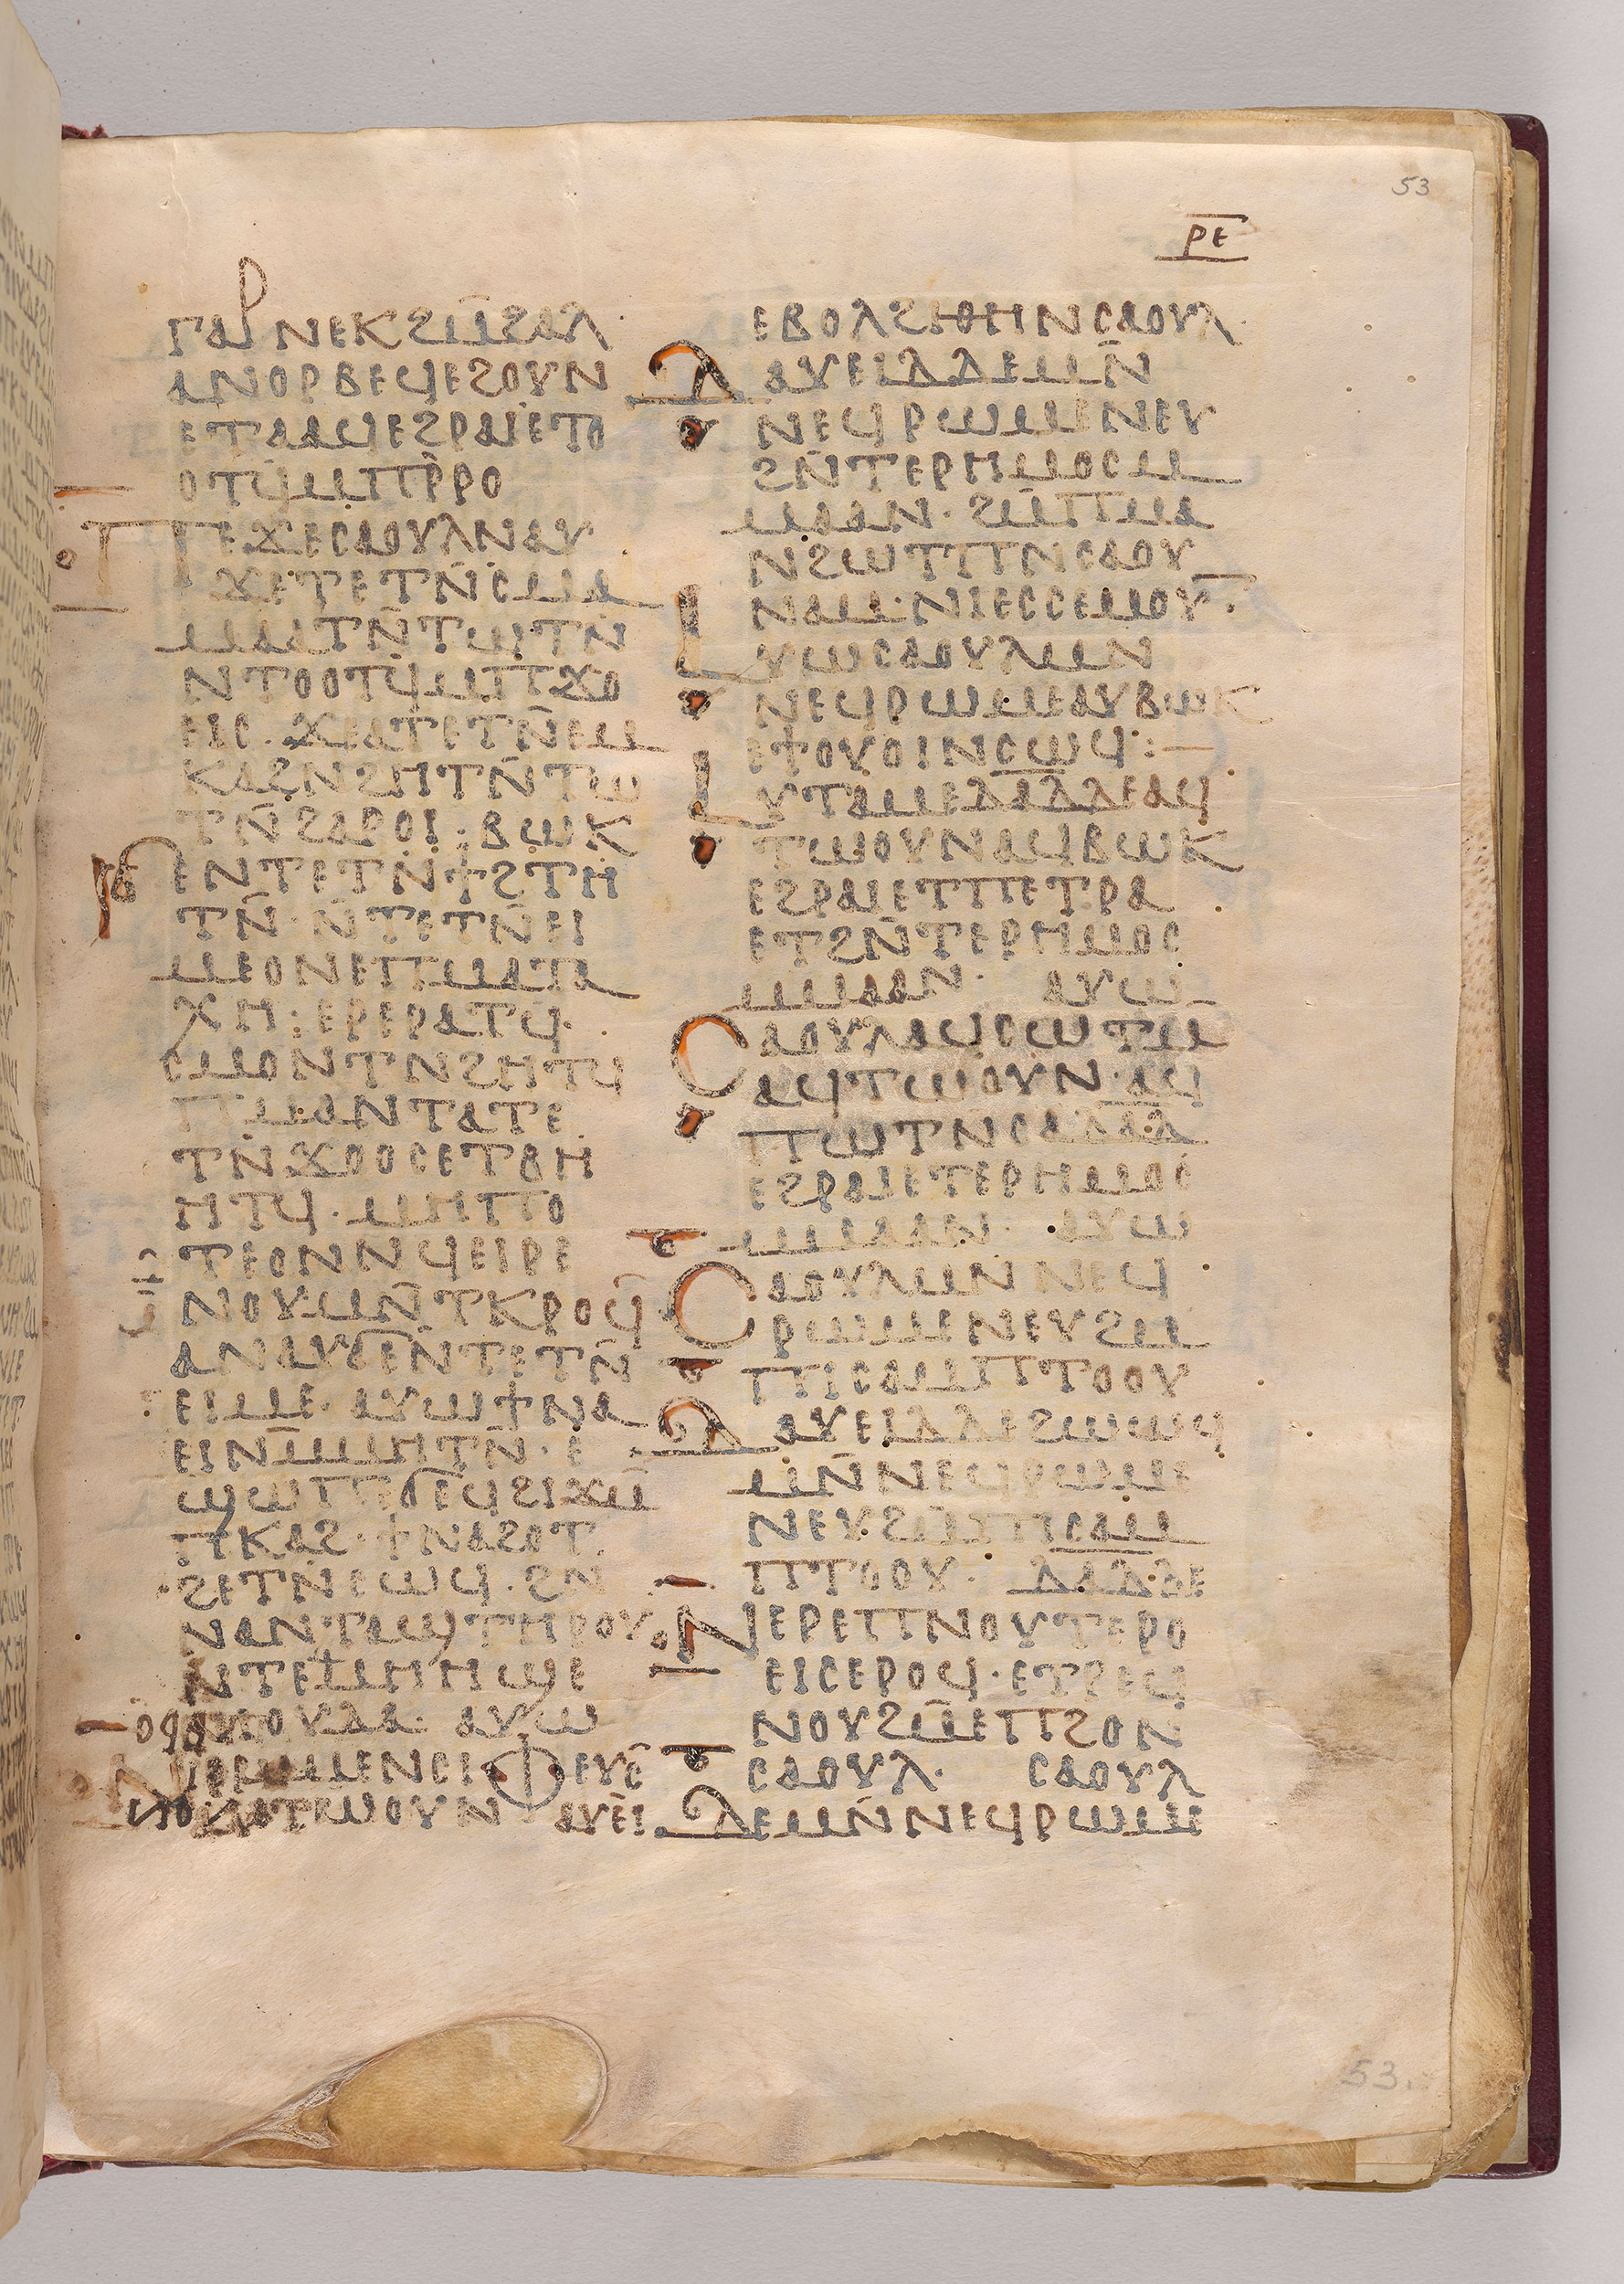 53
ⲣⲉ
ⲅⲁⲣ ⲛⲉⲕϩⲙ̄ϩⲁⲗ·
ⲁⲛⲟⲣⲃⲉϥⲉϩⲟⲩⲛ
ⲉⲧⲁⲁϥⲉϩⲣⲁⲓⲉⲧⲟ
ⲟⲧϥ̄ⲙⲡⲣ̄ⲣⲟ
ⲡⲉϫⲉⲥⲁⲟⲩⲗⲛⲁⲩ
ϫⲉⲧⲉⲧⲛ̄ⲥⲙⲁ
ⲙⲁⲁⲧⲛ̄ⲧⲱⲧⲛ̄
ⲛⲧⲟⲟⲧϥⲙⲡϫⲟ
ⲉⲓⲥ· ϫⲉⲁⲧⲉⲧⲛ̄ⲉⲙ
ⲕⲁϩⲛϩⲏⲧⲛ̄ⲧⲱ
ⲧⲛ̄ϩⲁⲣⲟⲓ: ⲃⲱⲕ
ϭⲉⲛⲧⲉⲧⲛ̄ϯϩⲧⲏ
ⲧⲛ̄· ⲛ̄ⲧⲉⲧⲛ̄ⲉⲓ
ⲙⲉⲟⲛⲉⲡⲙⲁⲧⲁ
ⲭⲏ: ⲉⲣⲉⲣⲁⲧϥ·
ⲥⲙⲟⲛⲧⲛϩⲏⲧϥ
ⲡⲙⲁⲛⲧⲁⲧⲉ
ⲧⲛ̄ϫⲟⲟⲥⲉⲧⲃⲏ
ⲏⲧϥ· ⲙⲏⲡⲟ
ⲧⲉⲟⲛⲛϥⲉⲓⲣⲉ
ⲛⲟⲩⲙⲛ̄ⲧⲕⲣⲟϥ
ⲁⲛⲁⲩϭⲉⲛ̄ⲧⲉⲧⲛ̄
ⲉⲓⲙⲉ· ⲁⲩⲱϯⲛⲁ
ⲉⲓⲛⲙ̄ⲙⲏⲧⲛ̄· ⲉ
ϣⲱⲡⲉϭⲉϥϩⲓϫⲙ̄
ⲡⲕⲁϩ· ϯⲛⲁϩⲟⲧ
ϩⲉⲧⲛ̄ⲥⲱϥ· ϩⲛ
ⲛⲁⲛⲧⲁϣⲧⲏⲣⲟⲩ
ⲛⲧⲉⲙⲏⲏϣⲉ
ⲛⲓⲟⲩⲇⲁ· ⲁⲩⲱ
ⲛⲣⲱⲙⲉⲛⲥⲓⲫⲉⲩⲥ̄
ⲁⲧⲱⲟⲩⲛ ⲁⲩⲉⲓ
ⲉⲃⲟⲗϩⲓⲑⲏⲛⲥⲁⲟⲩⲗ·
ⲇⲁⲩⲉⲓⲇⲇⲉⲙⲛ̄
ⲛⲉϥⲣⲱⲙⲉⲛⲉⲩ
ϩⲛ̄ⲧⲉⲣⲏⲙⲟⲥⲙ
ⲙⲁⲁⲛ· ϩⲙ̄ⲡⲙⲁ
ⲛϩⲱⲧⲡⲛⲥⲁⲟⲩ
ⲛⲁⲙ· ⲛⲓⲉⲥⲥⲉⲙⲟⲩ·
ⲁⲩⲱⲥⲁⲟⲩⲗⲙⲛ
ⲛⲉϥⲣⲱⲙⲉⲁⲩⲃⲱⲕ
ⲉϯⲟⲩⲟⲓⲛⲥⲱϥ:
ⲁⲩⲧⲁⲙⲉⲇⲁ̄ⲇ̄ⲇⲉⲁϥ
ⲧⲱⲟⲩⲛⲁϥⲃⲱⲕ
ⲉϩⲣⲁⲓⲉⲧⲡⲉⲧⲣⲁ
ⲉⲧϩⲛ̄ⲧⲉⲣⲏⲙⲟⲥ
ⲙⲙⲁⲁⲛ· ⲁⲩⲱ
ⲥⲁⲟⲩⲗⲁϥⲥⲱⲧⲙ
ⲁϥⲧⲱⲟⲩⲛ· ⲁϥ
ⲡⲱⲧⲛⲥⲁⲇⲁ̄ⲇ̄
ⲉϩⲣⲁⲓⲉⲧⲉⲣⲏⲙⲟⲥ
ⲙⲙⲁⲁⲛ· ⲁⲩⲱ
ⲥⲁⲟⲩⲗⲙⲛ̄ⲛⲉϥ
ⲣⲱⲙⲉⲛⲉⲩϩⲙ
ⲡⲓⲥⲁⲙⲡⲧⲟⲟⲩ
ⲇⲁⲩⲉⲓⲇⲇⲉϩⲱⲱϥ
ⲙⲛ̄ⲛⲉϥⲣⲱⲙⲉ
ⲛⲉⲩϩⲙ̄ⲡⲓⲥⲁⲙ
ⲡⲧⲟⲟⲩ· ⲇⲁ̄ⲇ̄ⲇⲉ
ⲛⲉⲣⲉⲡⲛⲟⲩⲧⲉⲣⲟ
ⲉⲓⲥⲉⲣⲟϥ· ⲉⲧⲣⲉϥ
ⲛⲟⲩϩⲙ̄ⲉⲡϩⲟⲛ
ⲥⲁⲟⲩⲗ· ⲥⲁⲟⲩⲗ
ⲇⲉⲙⲛ̄ⲛⲉϥⲣⲱⲙⲉ
53.